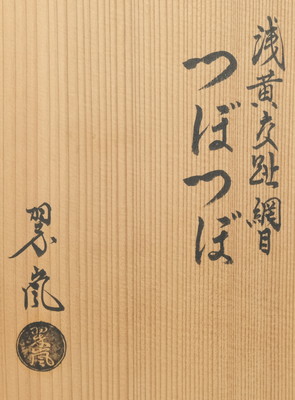 浅黄交趾網目
つぼつぼ
翠嵐
翠嵐